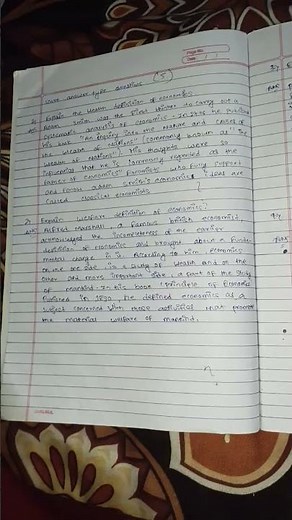 (5)
Short answer type question
1) Explain the wealth definition of economics?
Ans Adam Smith was the first thinker to carry out a
systematic analysis of economics. In 1776 he published
his book "An Inquiry into the Nature and causes of
the wealth of Nations" (commonly known as "The
wealth of Nations"). His thoughts were
influential that he is commonly regarded as the
father of economics" Economists who fully support
and follow adam smith's economics ideas are
called classical economists
2) Explain welfare definition of economics?
Ans Alfred Marshall, a famous british economist,
acknowledged the incompleteness of the earlier
definition of economics and brought about a funda-
mental change in it. According to him, economics
on one side is a study of wealth and on the
other and more important side, a part of the study
of mankind. In his book principle of Economics
published in 1890, he defined economics as a
subject concerned with those activities that promote
the material welfare of mankind.